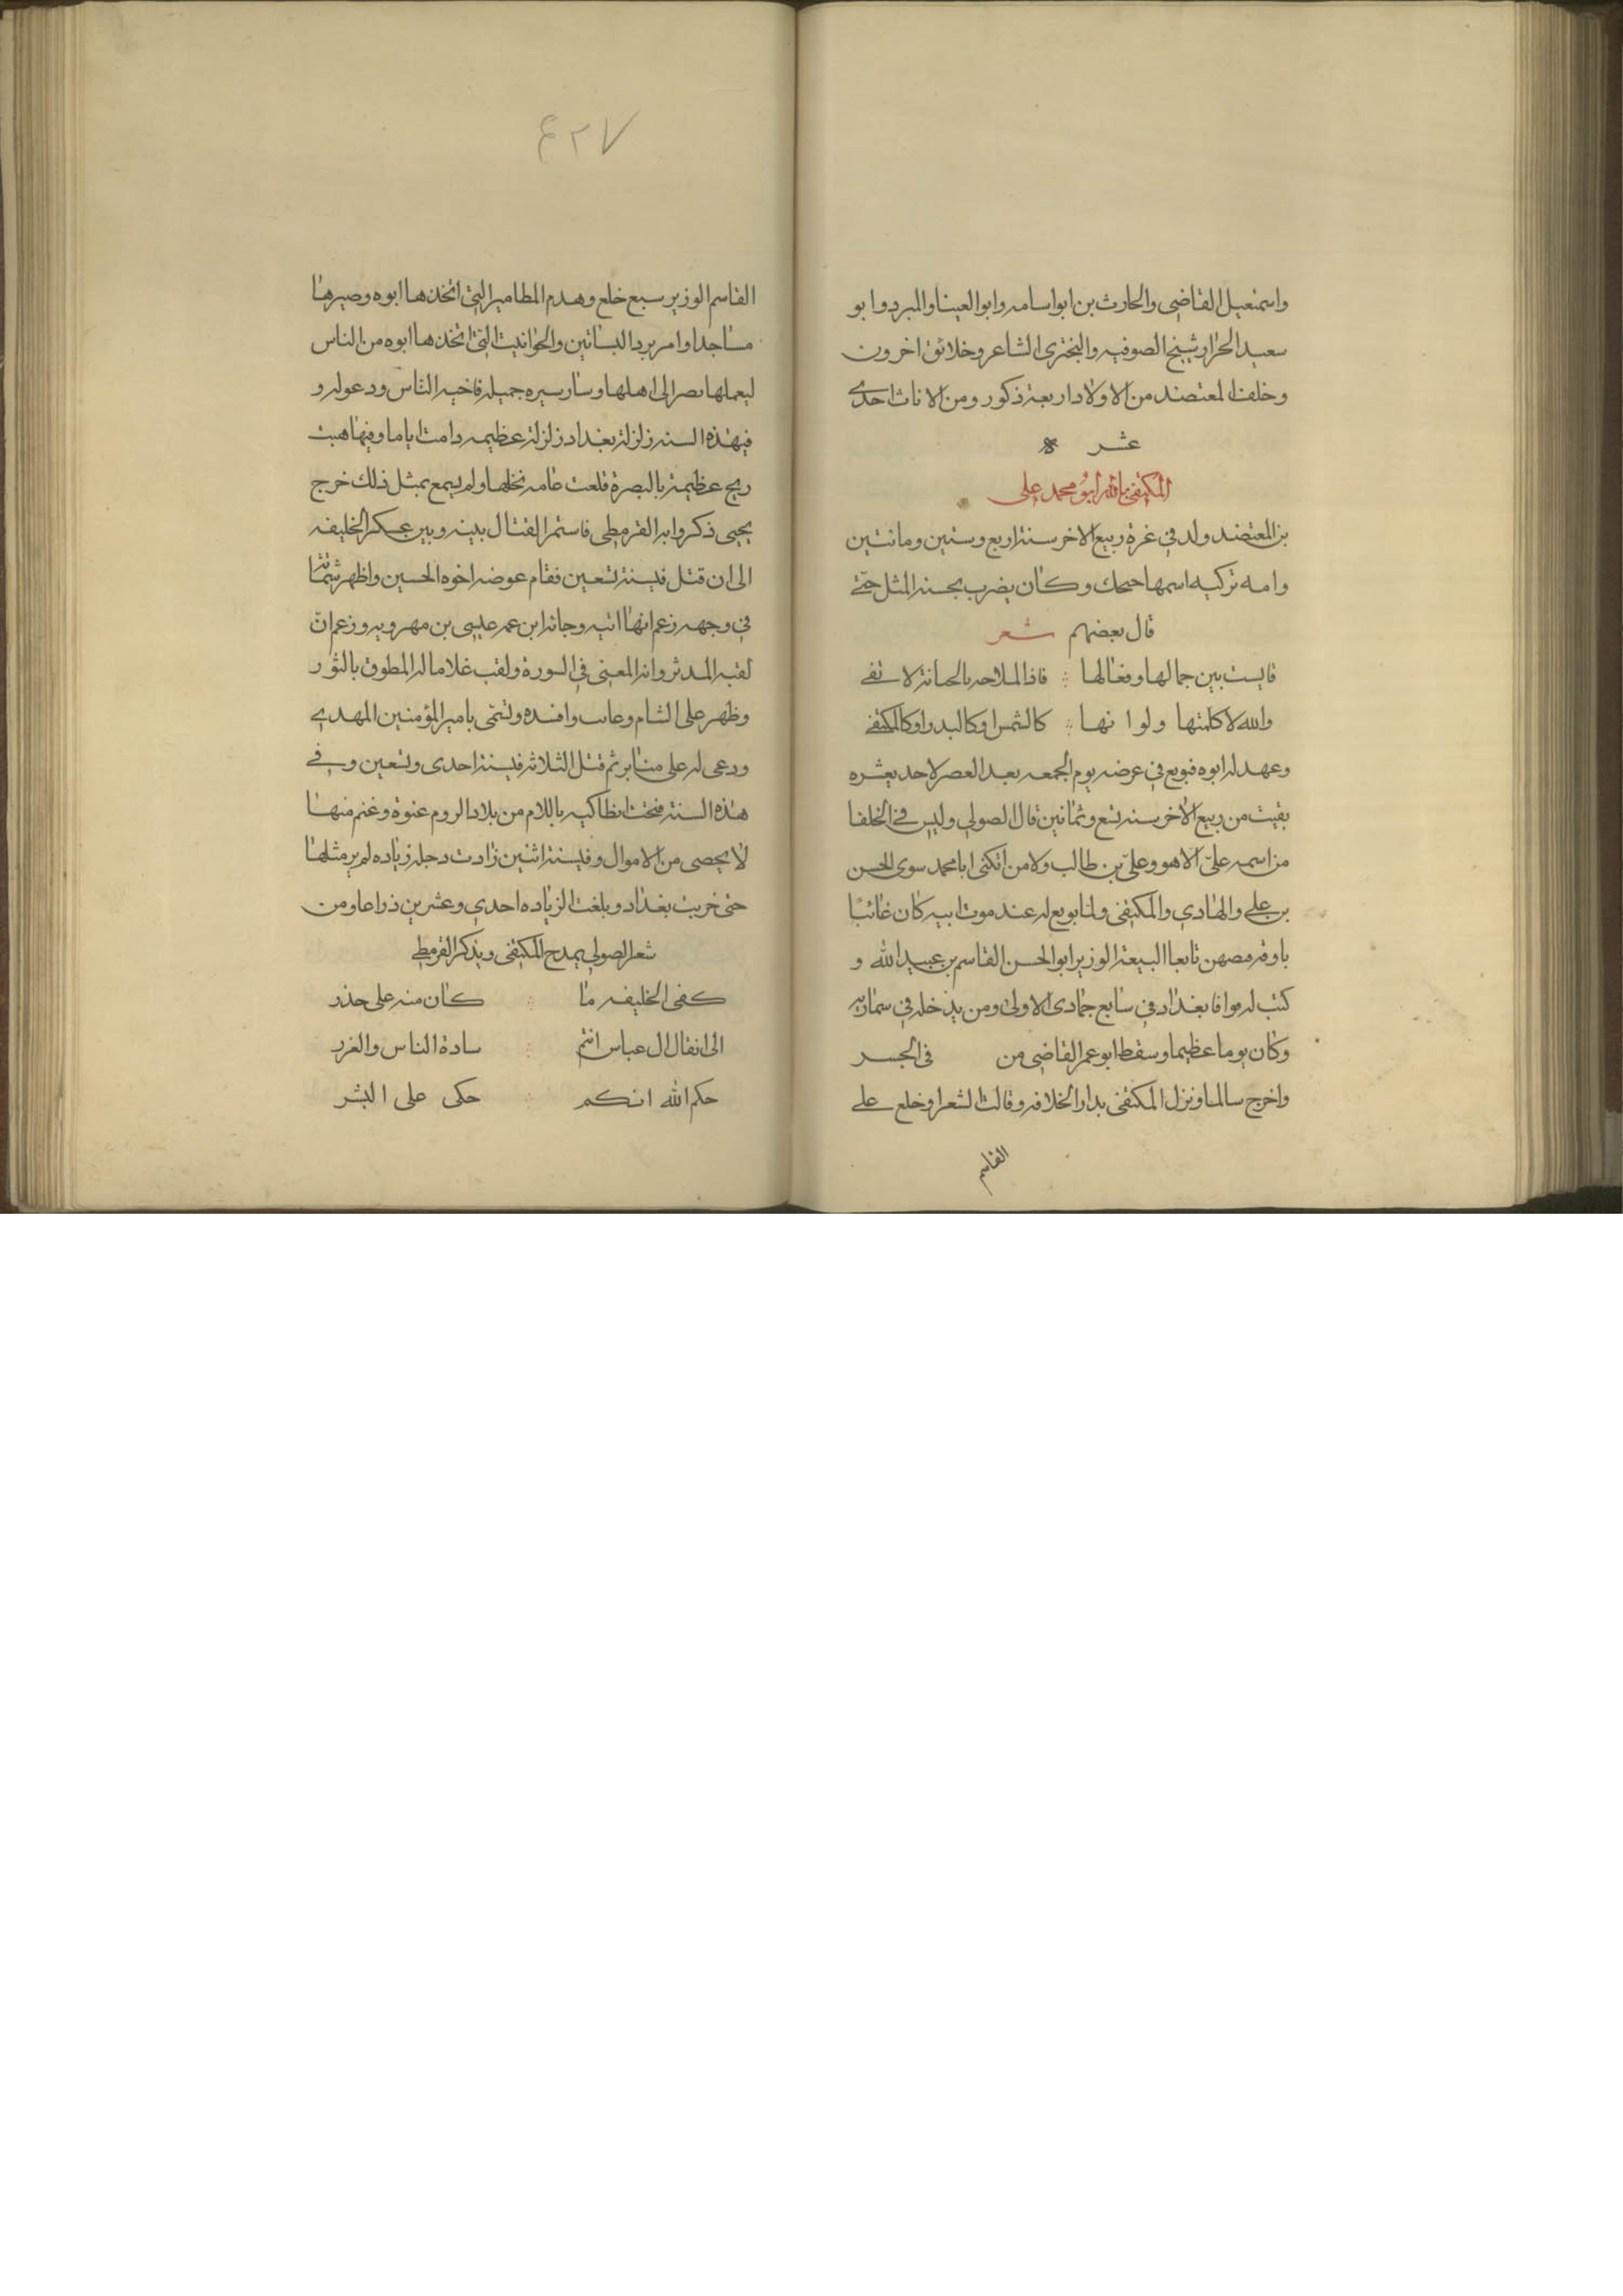 واسمعيل القاضي والحارث بن ابواسامه وابوالعينا والمبرد وابو
سعيد الخزار شيخ الصوفيه والبختري الشاعر وخلائق اخرون
وخلف المعتضد من الاولاد اربعة ذكور ومن الاناث احدي
عشر
المكتفي بالله ابو محمد علي
بن المعتضد ولد في غرة ربيع الاخر سنة اربع وستين ومائتين
وامه تركيه اسمها جيجك وكان يضرب بحسنه المثل حتي
قال بعضهم شعر
قايست بين جمالها وفعالها فاذا الملاحه بالخيانة لا تفي
والله لا كلمتها ولو انها كالشمس او كالبدر او كالمكتفي
وعهد له ابوه فبويع في عرضه يوم الجمعه بعد العصر لاحد يعشره
بقيت من ربيع الاخر سنه تسع وثمانين قال الصولي وليس في الخلفا
من اسمه علي الا هو وعلي بن طالب ولا من اتكنى ابا محمد سوى الحسن
بن علي والهادي والمكتفي ولما بويع له عند موت ابيه كان غائبا
فنهض باعبا البيعة الوزير ابوالحسن القاسم بن عبيد الله و
كتب له فوافا بغداد في سابع جمادى الاولى ومن يدخله في سماريه
وكان يوما عظيما وسقط ابو عمر القاضي من في الجسر
واخرج سالما ونزل المكتفي بدار الخلافه وقالت الشعرا وخلع علي
القاسم
٤٢٧
القاسم الوزير سبع خلع وهدم المطامير التي اتخذها ابوه وصيرها
مساجدا وامر برد البساتين والحوانيت التي اتخذها ابوه من الناس
ليعملها قصرا الى اهلها وسار سيره جميله فاحبه الناس ودعوا له و
في هذه السنه زلزلة بغداد زلزلة عظيمه دامت اياما وفيها هبت
ريح عظيمة بالبصرة قلعت عامه نخلها ولم يسمع بمثل ذلك خرج
يحيى ذكروا به القرمطي فاستمر القتال بينه وبين عسكر الخليفه
الى ان قتل في سنة تسعين فقام عوضه اخوه الحسين واظهر شامتا
في وجهه زعم انها اتيه وجائه ابن عمه عيسى بن مهرويه وزعم ان
لقبه المدثر وانه المعني في السورة ولقب غلاما له المطوق بالنور
وظهر على الشام وعاث وافسد وتسمى بامير المؤمنين المهدي
ودعى له على منابر ثم قتل الثلاثه في سنة احدى وتسعين وفي
هذه السنة فتحت انطاكيه باللام من بلاد الروم عنوة وغنم منها
لا يحصى من الاموال وفي سنة اثنين زادت دجله زياده لم ير مثلها
حتى خربت بغداد وبلغت الزياده احدي وعشرين ذراعا ومن
شعر الصولي يمدح المكتفي ويذكر القرمطي
كفى الخليفه ما كان منه على حذر
ال عباس انتم سادة الناس والغرر
حكم الله انكم حكى على البشر